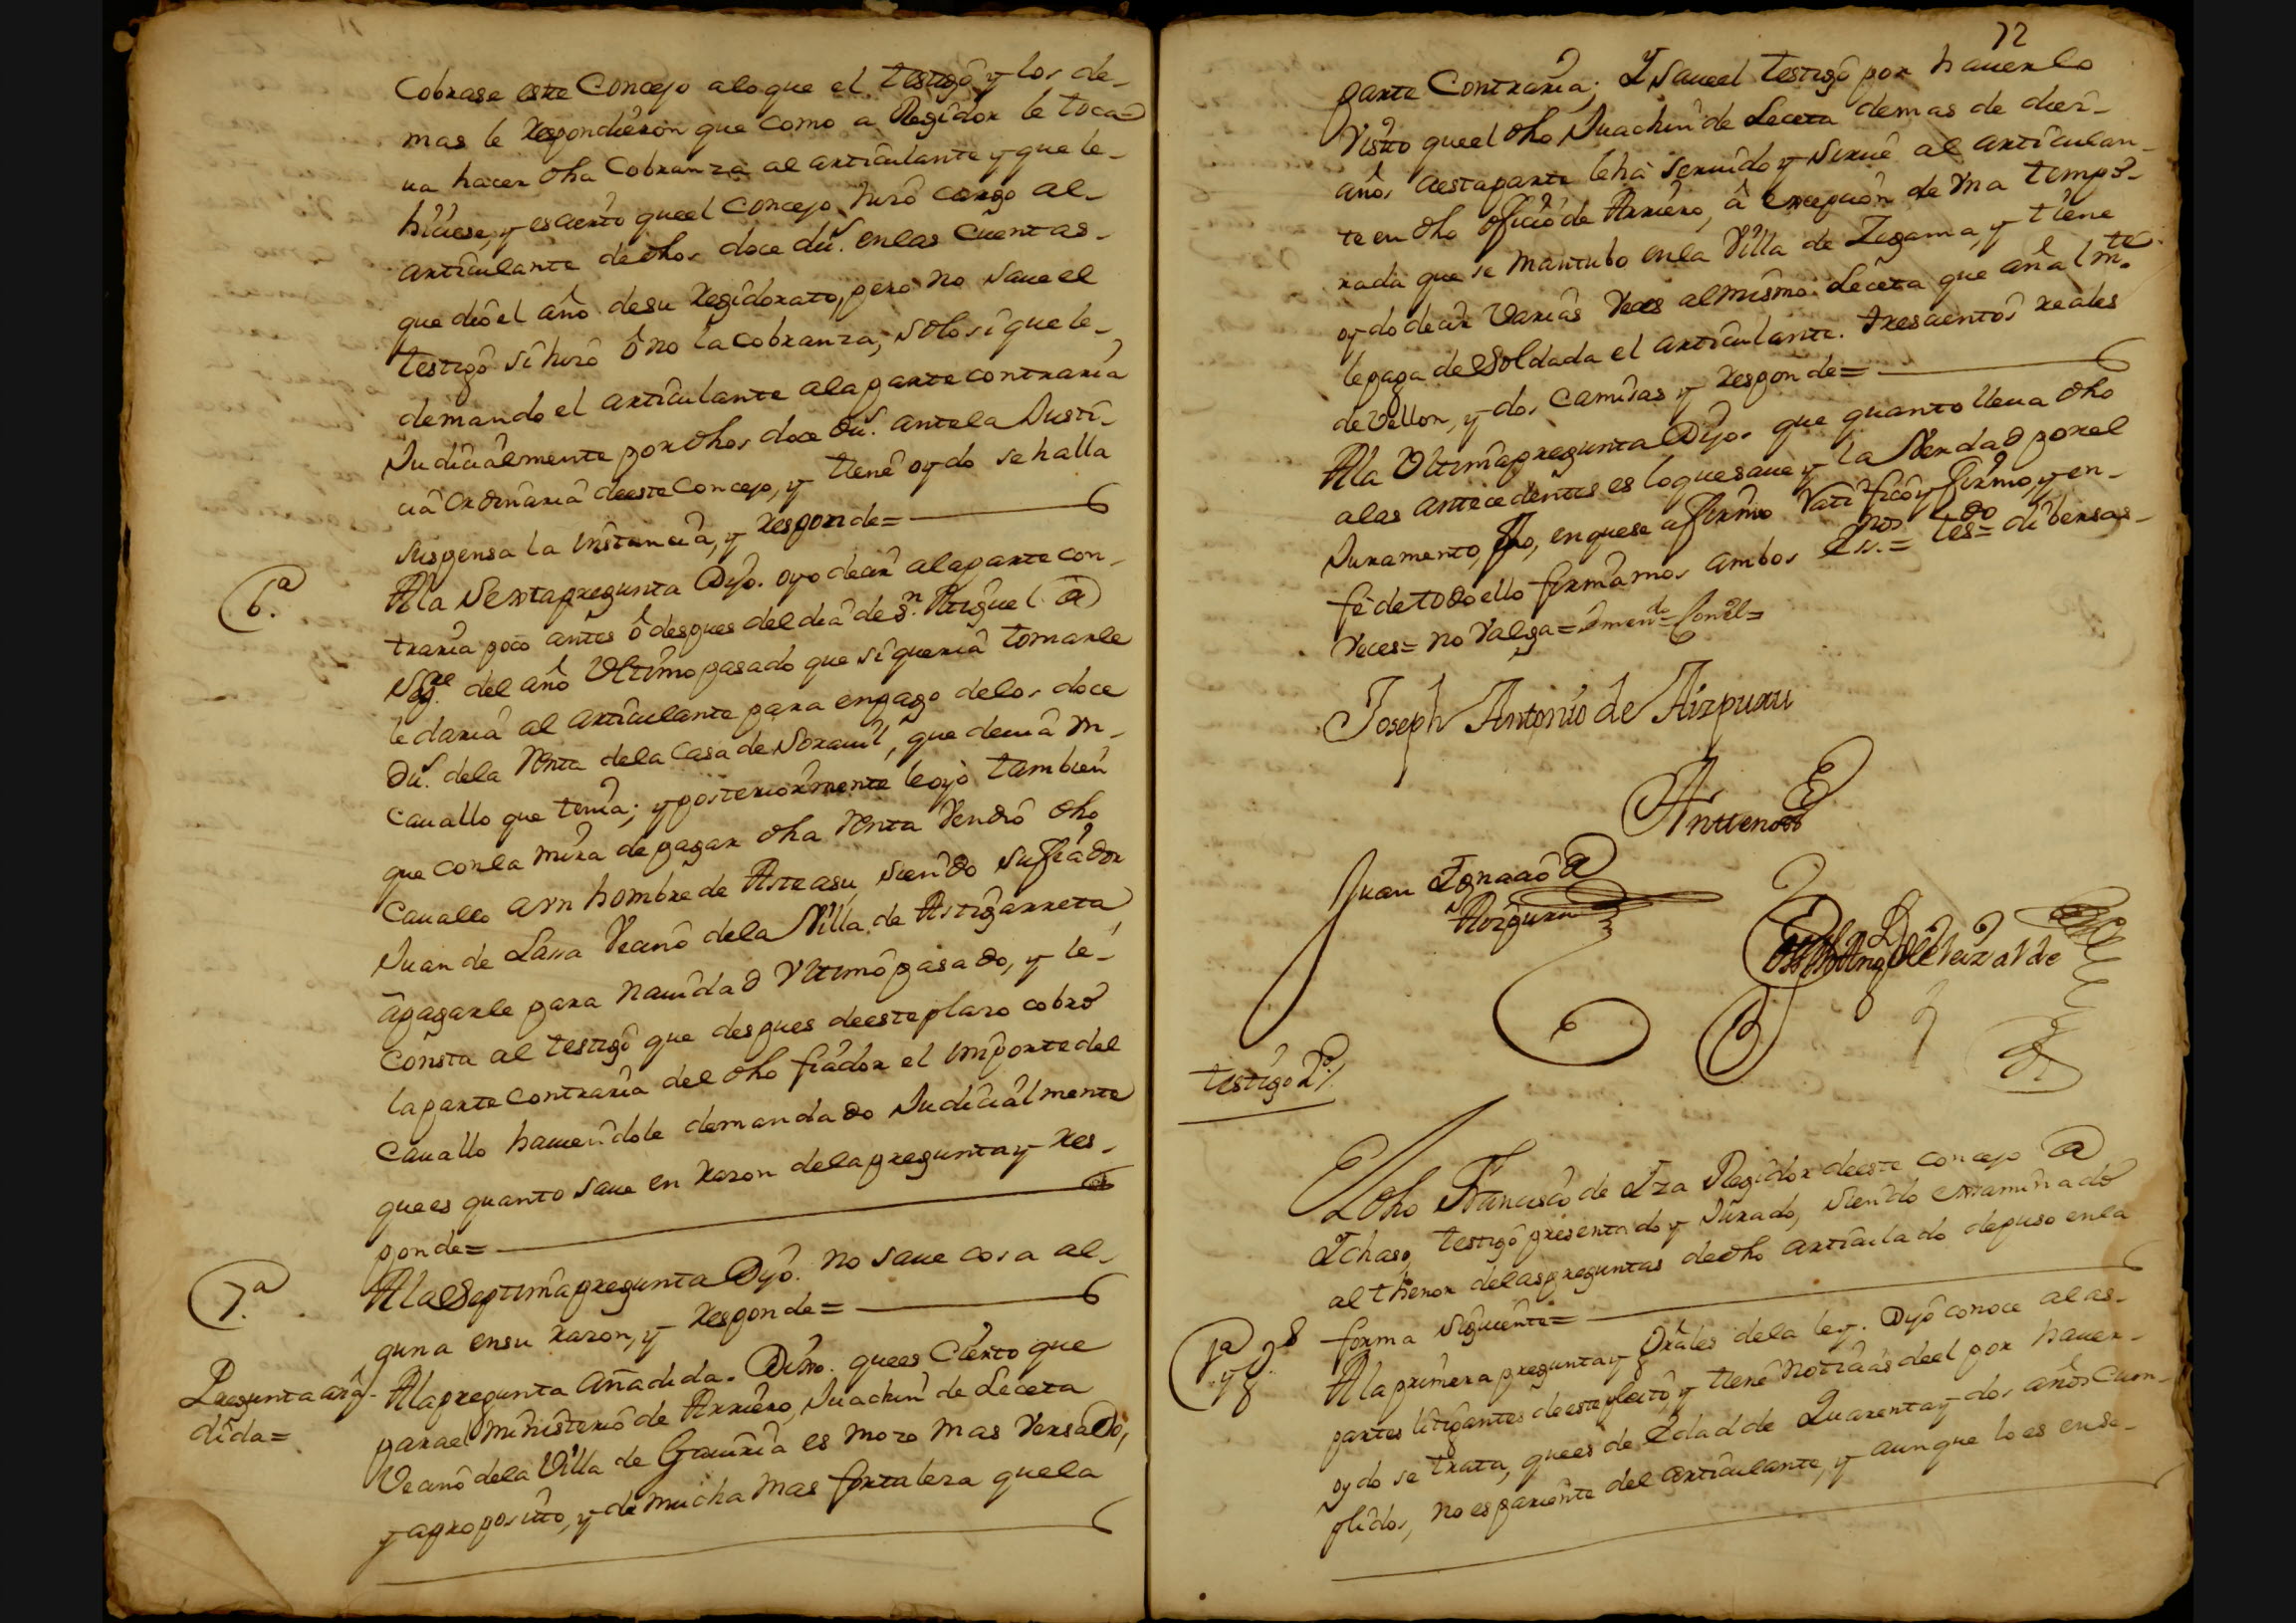 Cobrase este Concejo aloque el testigo y los de-
mas le Respondieron que como a Regidor le toca=
ua hacer dha Cobranza al articulante y que le-
hiciese, y es cierto queel Concejo hizo cargo al-
articulante de dhos doce du.s enlas Cuentas-
que dio el año desu Regidorato, pero no Saue el
testigo si hizo ô no la cobranza, solo si que le-
demando el articulante ala parte contraria
Judicialmente por dhos doce du.s ante la Justi-
cia Ordinaria deeste Concejo, y tiene oydo se halla
suspensa la instancia, y Responde=
6.a
Ala Sexta pregunta Dijo. oyo decir ala parte con-
traria poco antes ô despues del dia de S.n Miguel de
del año Ultimo pasado que si queria tomarle
le daria al articulante para en pago delos doce
du.s dela Renta dela Casa de que deuia Vn-
Cauallo que tenia; y posteriormente le oyo tambien
que con la mira de pagar dha Renta Vendio dho
Cauallo a Vn hombre de Asteasu, siendo su fiador
Juan de Lasa Vecino dela Villa de Astigarreta
âpagarle para nauidad Vltimo pasado, y le-
Consta al testigo que despues deeste plazo cobro
la parte contraria del dho fiador el importe del
Cauallo hauiendole demandado Judicialmente
que es quanto saue en razon dela pregunta y Res-
ponde=
7.a
Ala Septima pregunta Dijo. no saue cosa al-
guna ensu razon, y Responde=
Pregunta aña-
dida=
Ala pregunta añadida. Dixo. que es Cierto que
para el ministerio de Arriero, Juachin de Leceta
Vecino dela Villa de Gauiria es mozo mas Versado,
y aproposito, y de mucha mas fortaleza que la
72
parte Contraria; Y Saue el testigo por hauerlo
Visto queel dho Juachin de Leceta demas de diez-
años aesta parte le ha seruido y sirue al articulan-
te en dho oficio de Arriero, â excepcion de Vna tempo-
rada que se mantubo enla Villa de Zegama, y tiene
oydo decir Varias Veces al mismo Leceta que añalm.te
le paga de Soldada el articulante. trescientos reales
de Vellon, y dos Camisas y Responde=
Ala Vltima pregunta Dijo. que quanto lleua dho
alas antecedentes es lo que saue y la Verdad por el
Juramento, fho, en que se afirmo Ratifico y firmo, y en-
fe de todo ello firmamos ambos Ess.nos= t.do= diversas-
Veces= no Valga= emen.do=
Joseph Antonio de Aizpuru
Ante nos
Juan Ignacio de
Aizpuru
testigo 2.o
El dho Francisco de Iza Regidor deeste concejo de
Ichaso, testigo presentado y Jurado, siendo examinado
al thenor delas preguntas de dho articulado depuso enla
forma Siguiente=
1.a y g.s
Ala primera pregunta y Grales dela ley. Dijo conoce alas-
partes litigantes deeste pleito, y tiene noticias deel por hauer-
oydo se trata, que es de Edad de Quarenta y dos años Cum-
plidos, no es pariente del articulante, y aunque lo es en se-